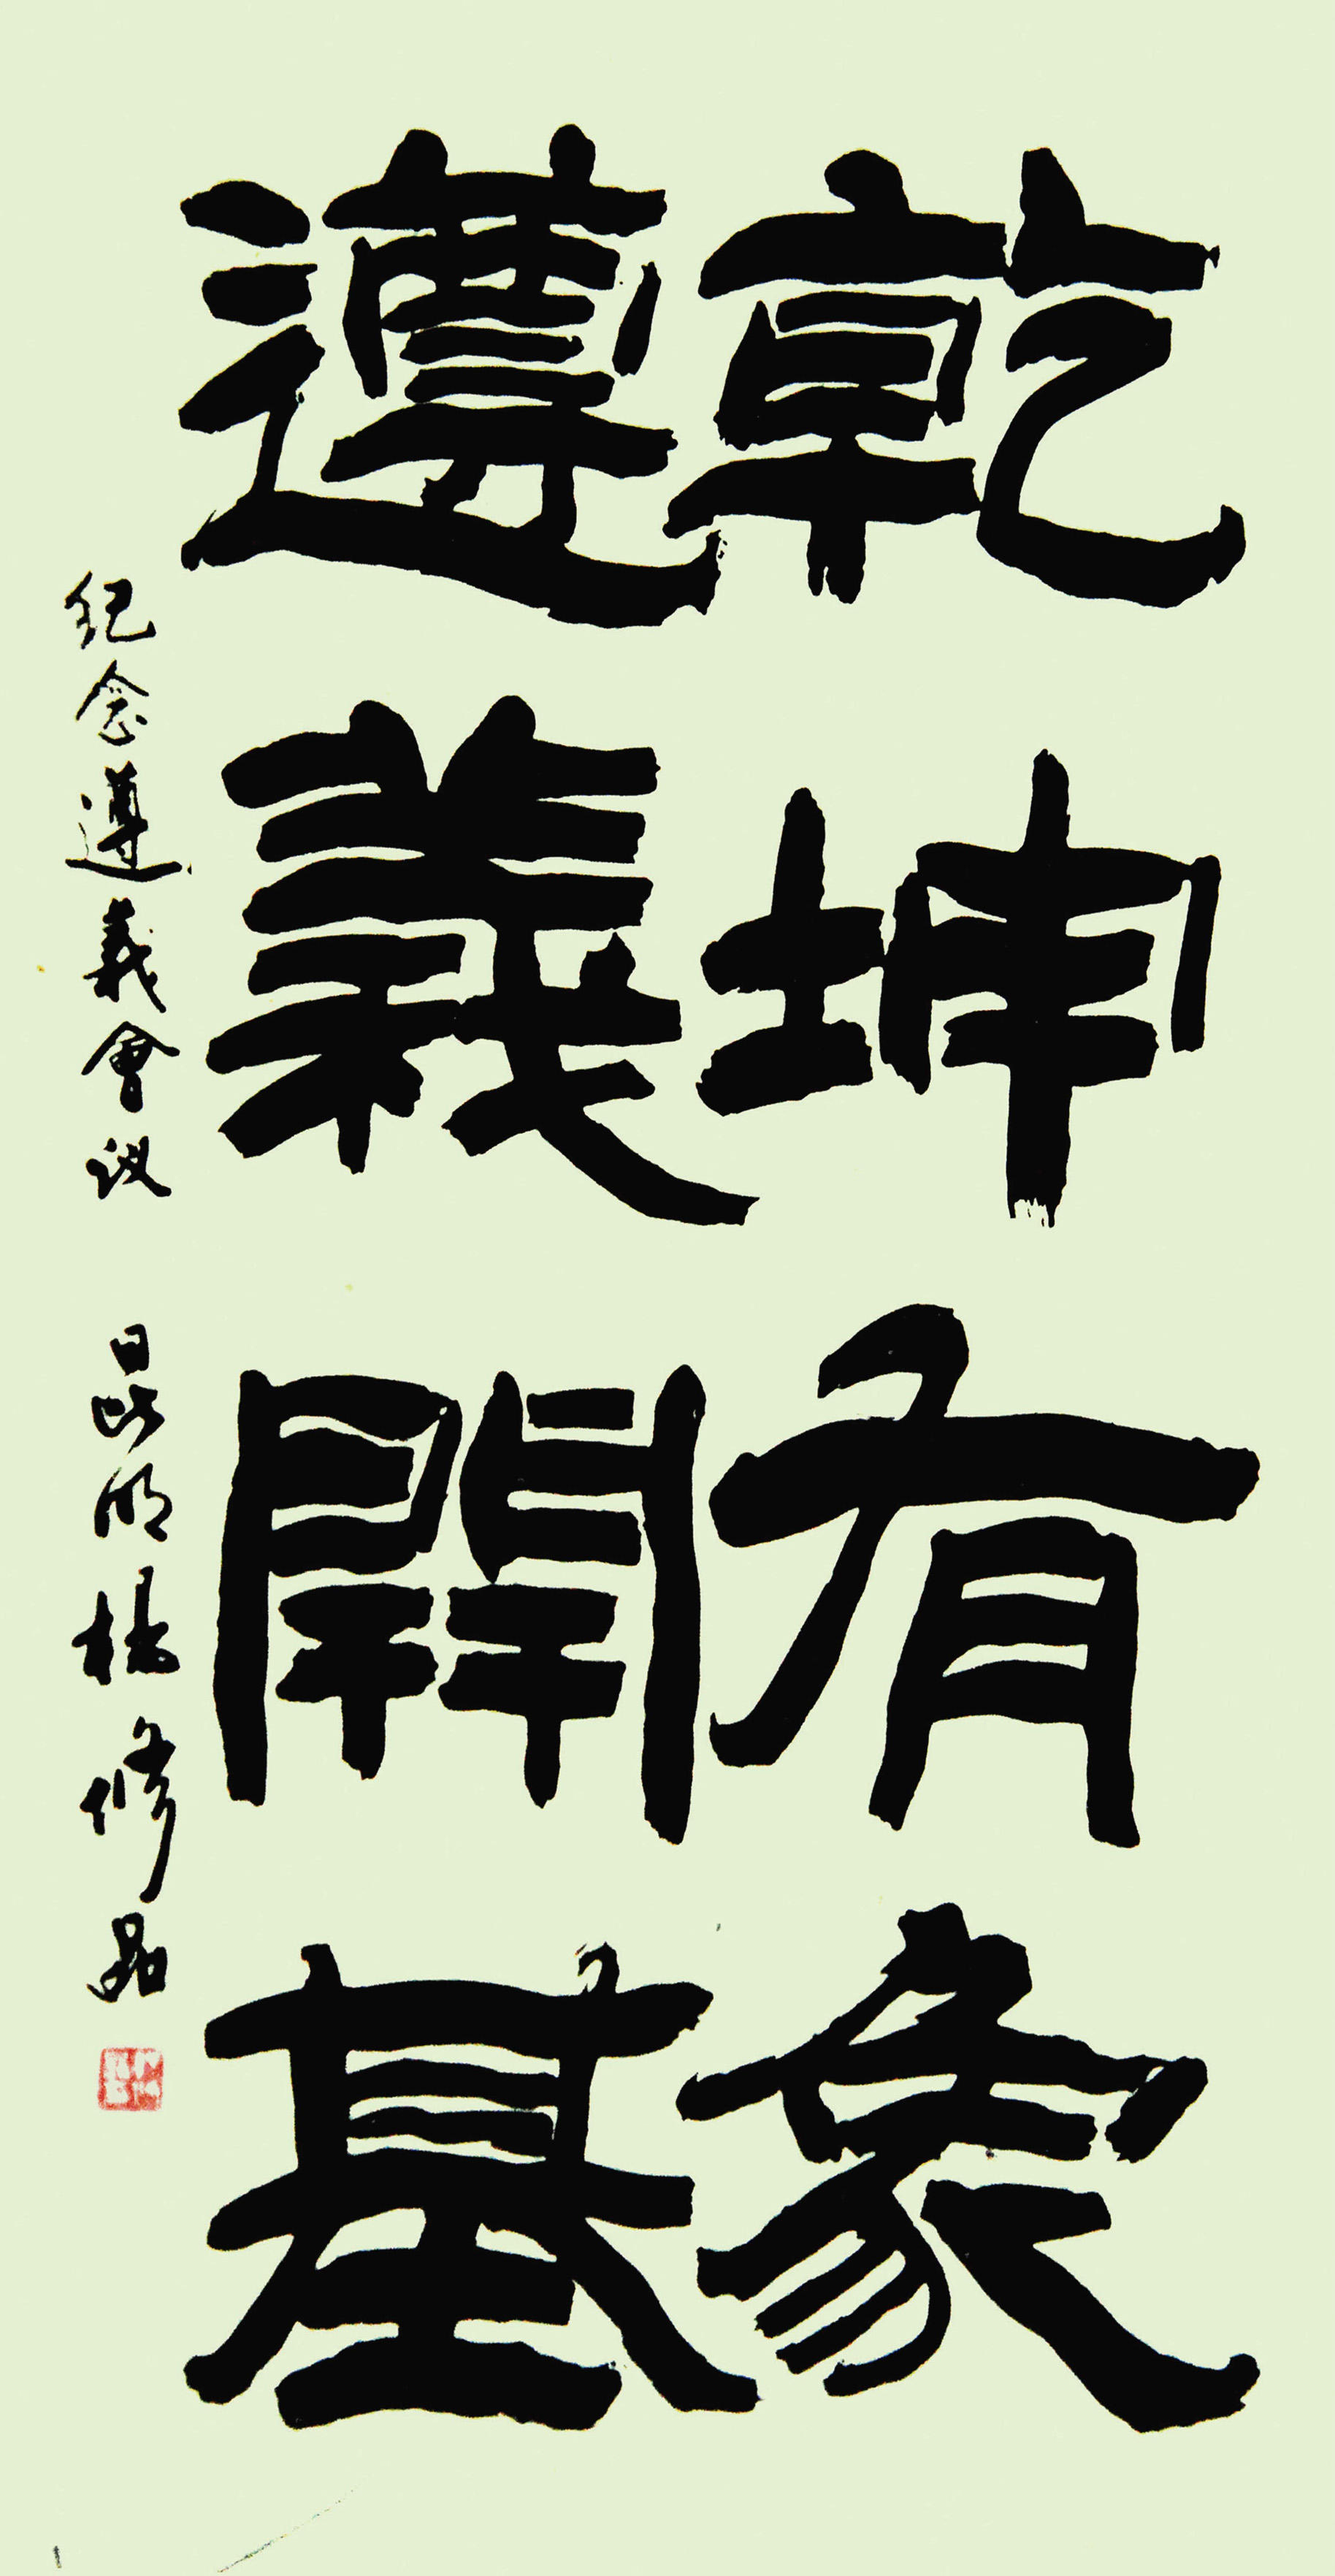 乾坤有象
遵義開基
纪念遵義會议 昆明楊修品